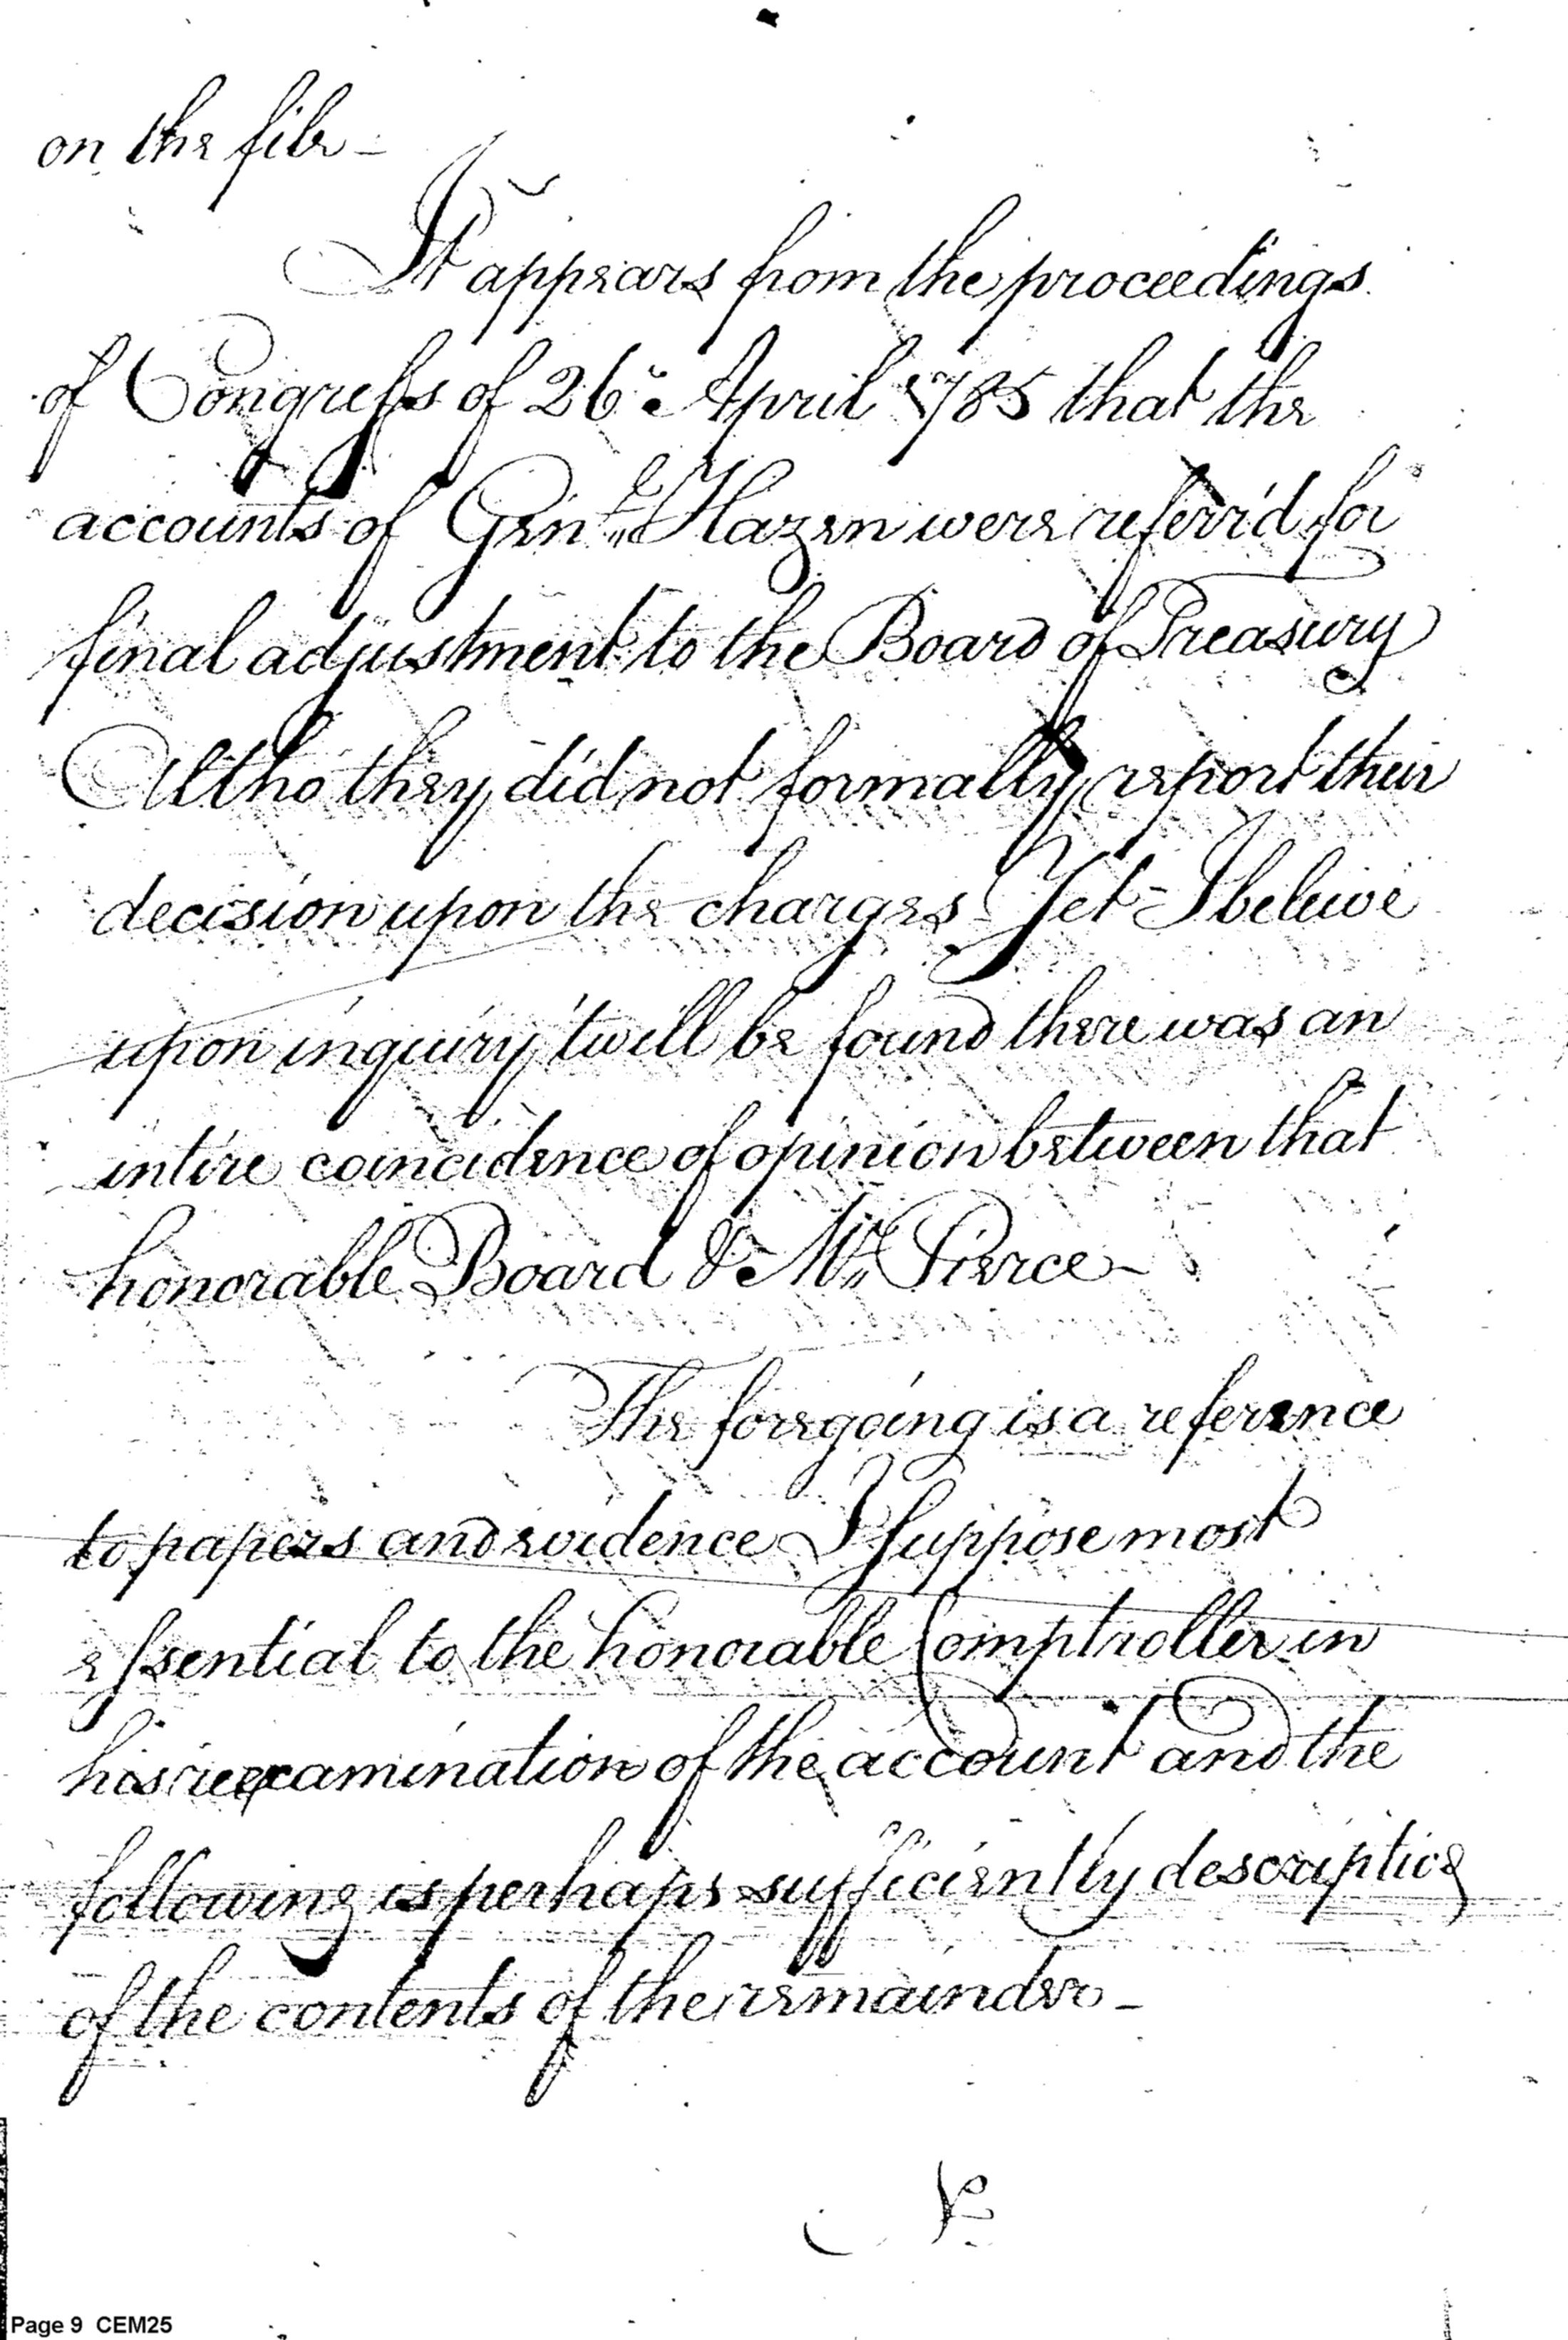 on the file –
It appears from the proceedings
of Congress of 26th April 1785 that the
accounts of Genl. Hazen were referr'd for
final adjustment to the Board of Treasury
Altho they did not formally report their
decision upon the charges Yet I beleive
upon inquiry 'twill be found there was an
intire coincidence of opinion between that
honorable Board & Mr. Pierce –
The foregoing is a reference
to papers and evidence I Suppose most
essential to the honorable Comptroller in
his reexamination of the account and the
following is perhaps sufficiently descriptive
of the contents of the remainder –
Page 9 CEM25